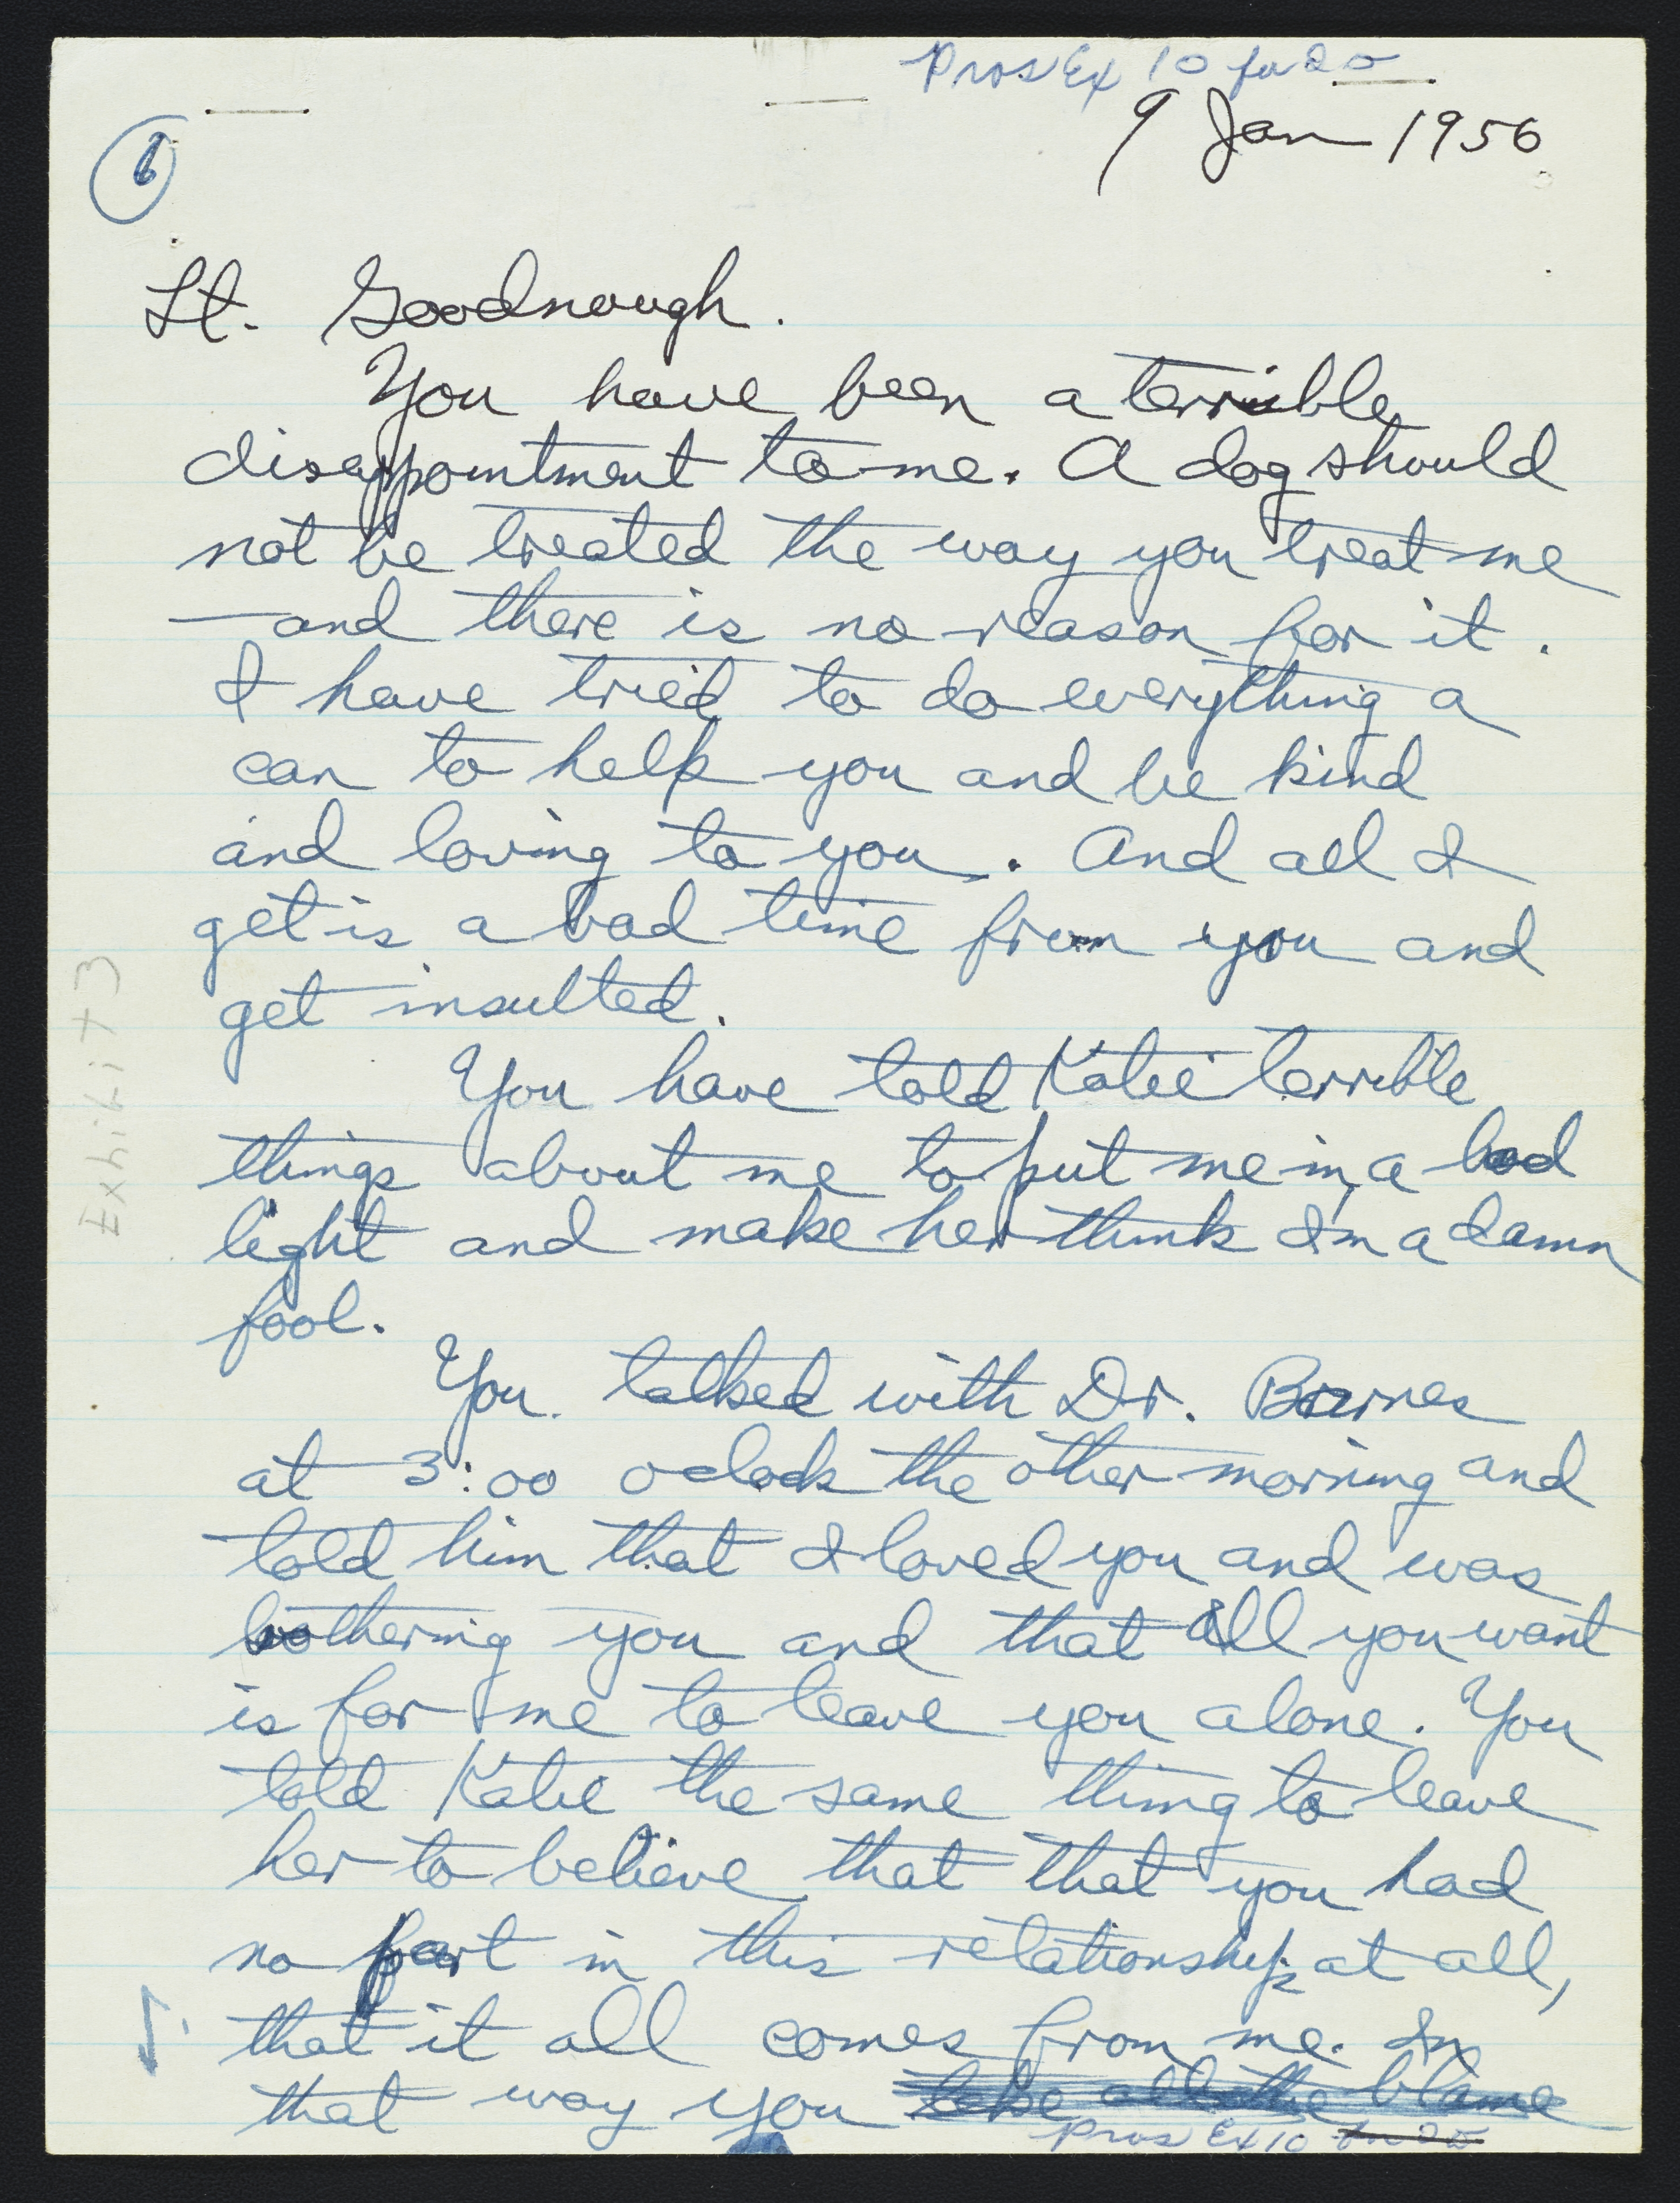 Pros Ex 10 for ID
9 Jan 1956
6
Lt. Goodnough.
You have been a terrible
disappointment to me. A dog should
not be treated the way you treat me
—and there is no reason for it.
I have tried to do everything a
can to help you and be kind
and loving to you. And all I
get is a bad time from you and
get insulted.
You have told Katie terrible
things about me to put me in a bad
light and make her think I'm a damn
fool.
You talked with Dr. Barnes
at 3:00 oclock the other morning and
told him that I loved you and was
bothering you and that all you want
is for me to leave you alone. You
told Katie the same thing to leave
her to believe that that you had
no part in this relationship at all,
that it all comes from me. In
that way you take all the blame
Pros Ex 10 for ID
Exhibit 3